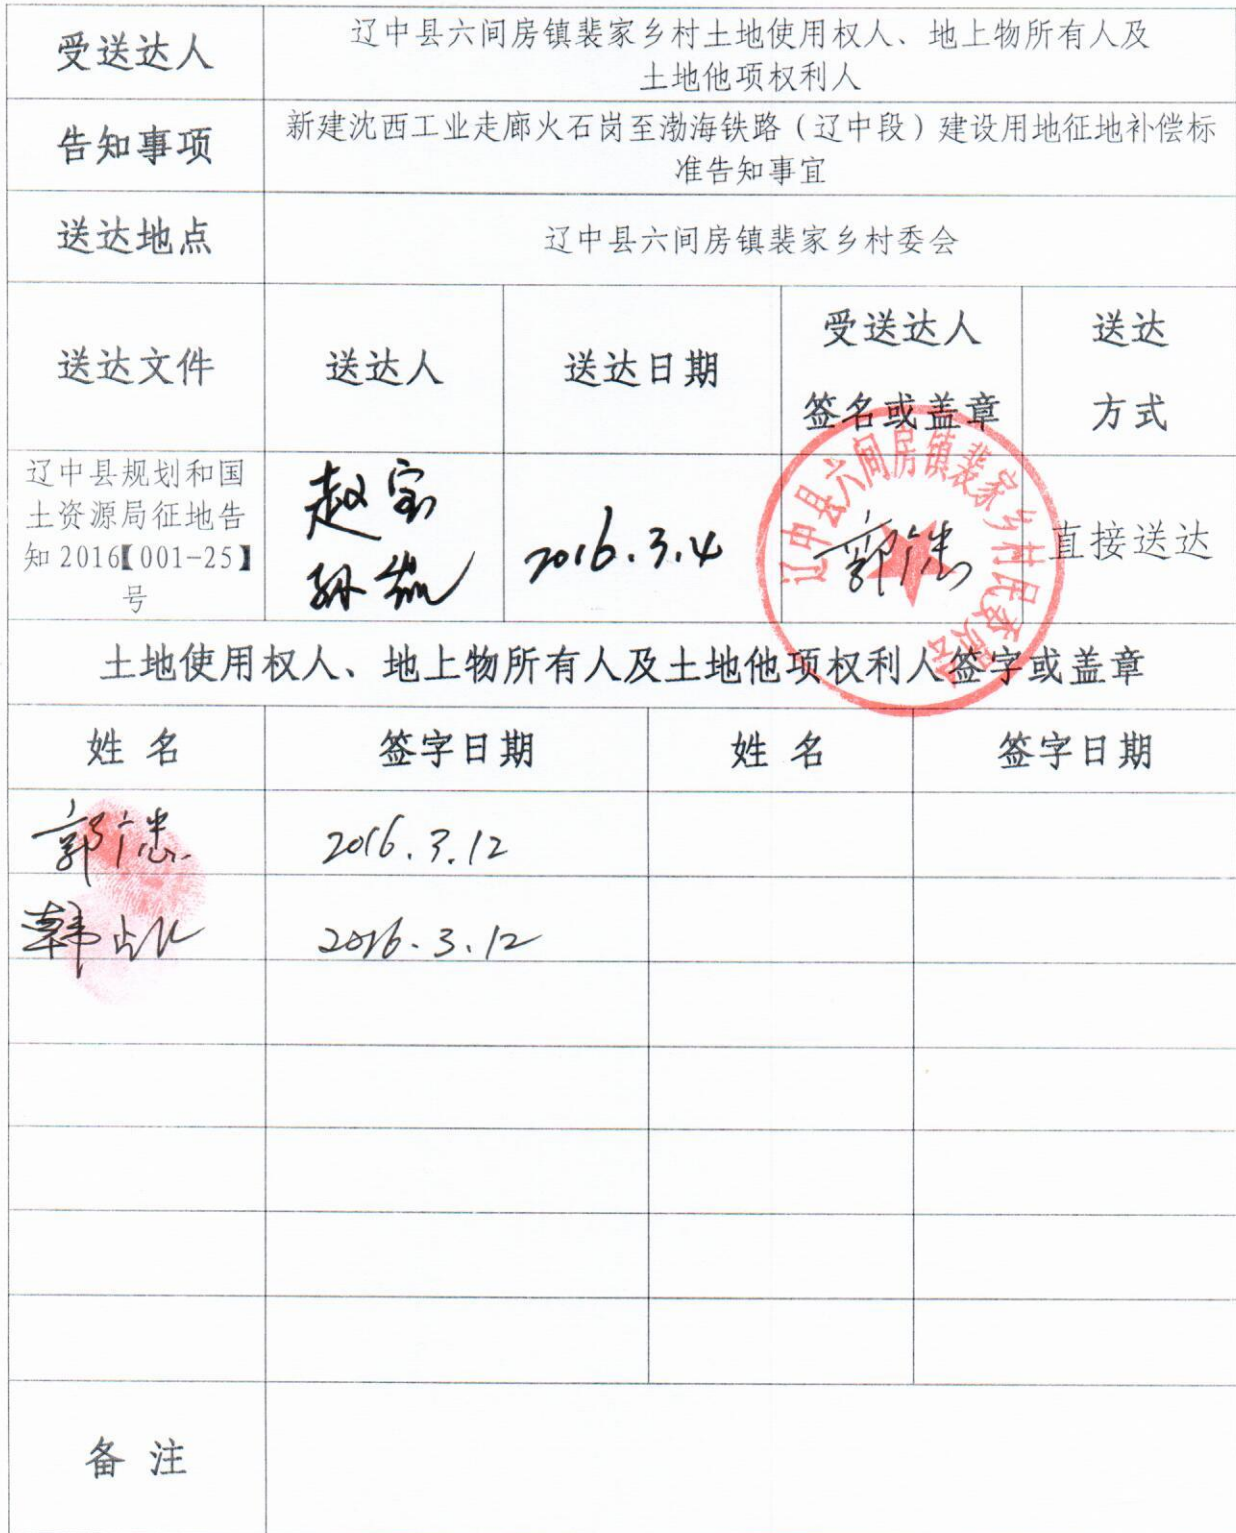 受送达人
辽中县六间房镇裴家乡村土地使用权人、地上物所有人及
土地他项权利人
告知事项
新建沈西工业走廊火石岗至渤海铁路（辽中段）建设用地征地补偿标
准告知事宜
送达地点
辽中县六间房镇裴家乡村委会
送达文件
送达人
送达日期
受送达人
签名或盖章
送达
方式
辽中县规划和国
土资源局征地告
知2016【001-25】
号
赵宝
孙
2016.3.4
郭
辽中县六间房镇裴家乡村民委员会
直接送达
土地使用权人、地上物所有人及土地他项权利人签字或盖章
姓 名
签字日期
姓 名
签字日期
郭
2016.3.12
韩占
2016.3.12
备 注